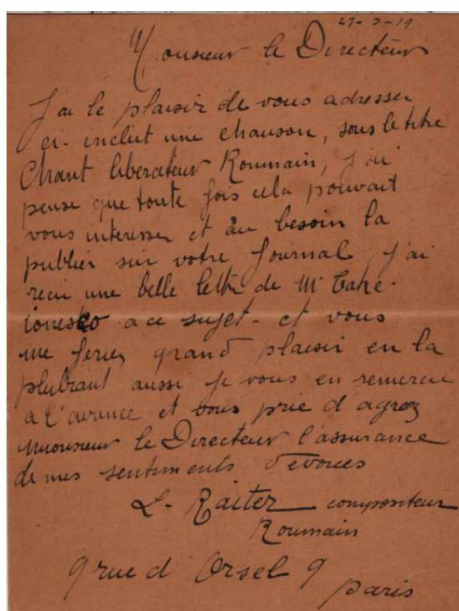 27-3-19
Monsieur le Directeur
J'ai le plaisir de vous adresser
ci-inclut une chanson, sous le titre
Chant liberateur Roumain, j'ai
pensé que toute fois cela pouvait
vous interesser et au besoin la
publier sur votre Journal, j'ai
recu une belle lettre de Mr Také-
ionesco a ce sujet- et vous
me feriez grand plaisir en la
plubrant aussi je vous en remercie
a l'avance et vous prie d'agrez
Mouonsieur le Directeur l'assurance
de mes sentiments devouees
L- Raiter compositeur
Roumain
9 rue d'Orsel 9
paris